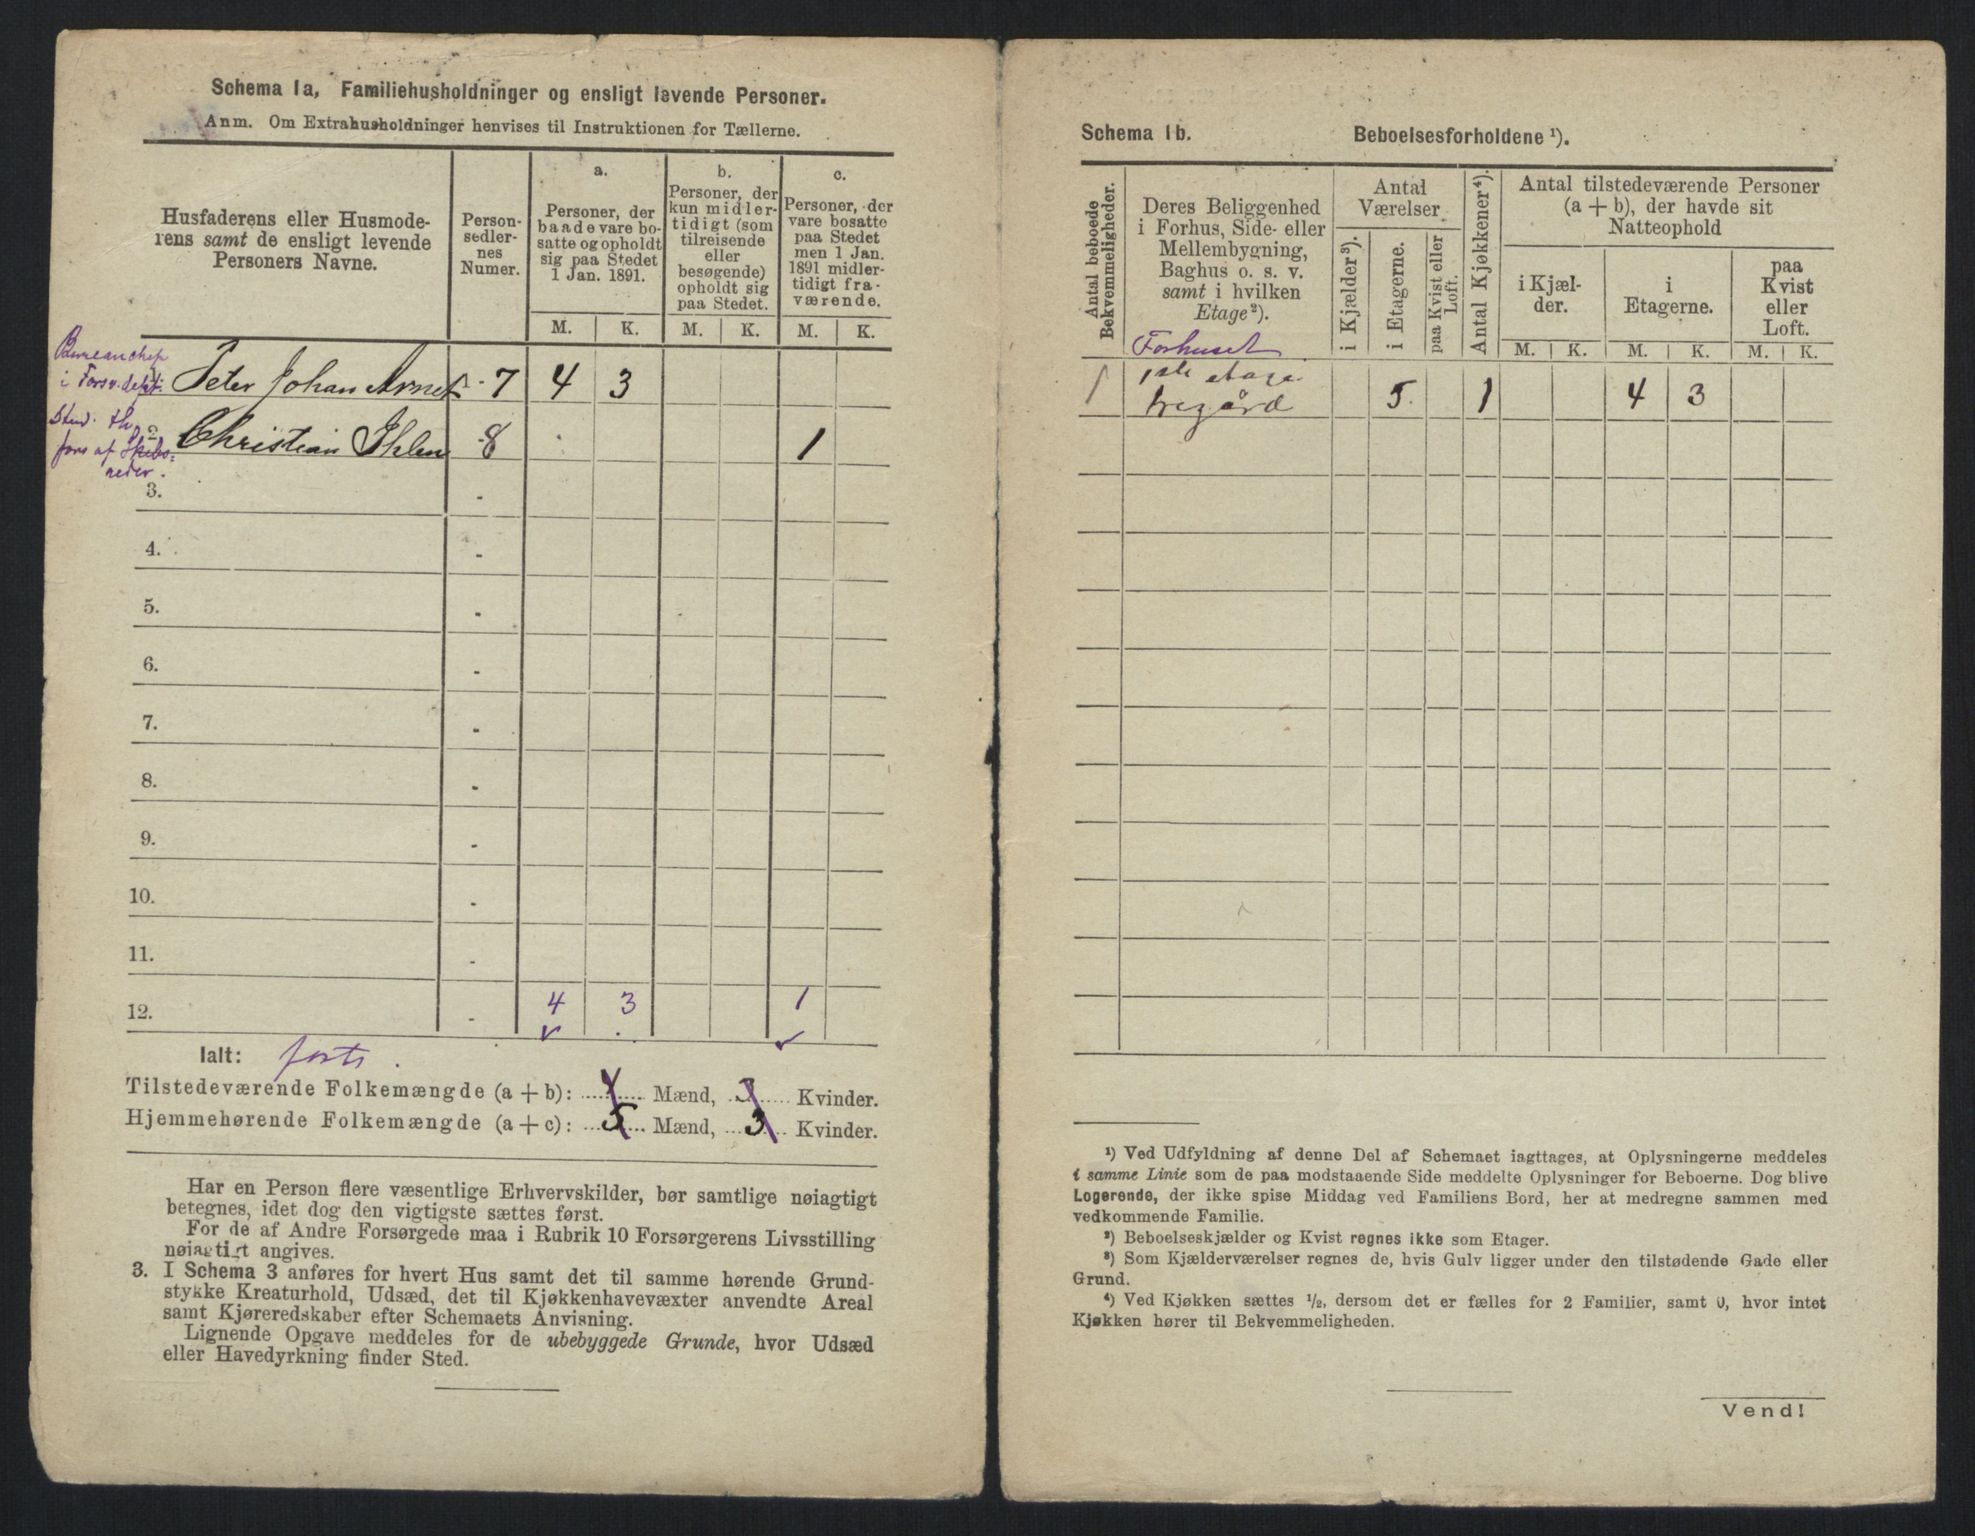 Schema 1a, Familiehusholdninger og ensligt levende Personer.
Anm. Om Extrahusholdninger henvises til Instruktionen for Tællerne.
Husfaderens eller Husmode-
rens samt de ensligt levende
Personers Navne.
Person-
sedler-
nes
Numer.
a.
Personer, der
baade vare bo-
satte og opholdt
sig paa Stedet
1 Jan. 1891.
b.
Personer, der
kun midler-
tidigt (som
tilreisende
eller
besøgende)
opholdt sig
paa Stedet.
c.
Personer, der
vare bosatte
paa Stedet
men 1 Jan.
1891 midler-
tidigt fra-
værende.
M. K. M. K. M. K.
Bureauchef
i Forsv. dept.
Peter Johan Arnet - 7 4 3
Stud.
fors af Skibs-
reder.
2 Christian Ihlen - 8 1
3. -
4. -
5. -
6. -
7. -
8. -
9. -
10. -
11. -
12. - 4 3 1
Ialt: forts.
Tilstedeværende Folkemængde (a + b): 4 Mænd, 3 Kvinder.
Hjemmehørende Folkemængde (a + c): 5 Mænd, 3 Kvinder.
Har en Person flere væsentlige Erhvervskilder, bør samtlige nøiagtigt
betegnes, idet dog den vigtigste sættes først.
For de af Andre Forsørgede maa i Rubrik 10 Forsørgerens Livsstilling
nøiagtigt angives.
3. I Schema 3 anføres for hvert Hus samt det til samme hørende Grund-
stykke Kreaturhold, Udsæd, det til Kjøkkenhavevæxter anvendte Areal
samt Kjøreredskaber efter Schemaets Anvisning.
Lignende Opgave meddeles for de ubebyggede Grunde, hvor Udsæd
eller Havedyrkning finder Sted.
Schema 1b. Beboelsesforholdene ¹).
Antal beboede
Bekvemmeligheder.
Deres Beliggenhed
i Forhus, Side- eller
Mellembygning,
Baghus o. s. v.
samt i hvilken
Etage²).
Antal
Værelser
i Kjælder³).
i Etagerne.
paa Kvist eller
Loft.
Antal Kjøkkener⁴).
Antal tilstedeværende Personer
(a + b), der havde sit
Natteophold
i Kjæl-
der.
i
Etagerne.
paa
Kvist
eller
Loft.
M. K. M. K. M. K.
Forhuset
1 1ste etage 5. 1 4 3
¹) Ved Udfyldning af denne Del af Schemaet iagttages, at Oplysningerne meddeles
i samme Linie som de paa modstaaende Side meddelte Oplysninger for Beboerne. Dog blive
Logerende, der ikke spise Middag ved Familiens Bord, her at medregne sammen med
vedkommende Familie.
²) Beboelseskjælder og Kvist regnes ikke som Etager.
³) Som Kjælderværelser regnes de, hvis Gulv ligger under den tilstødende Gade eller
Grund.
⁴) Ved Kjøkken sættes ½, dersom det er fælles for 2 Familier, samt 0, hvor intet
Kjøkken hører til Bekvemmeligheden.
Vend!